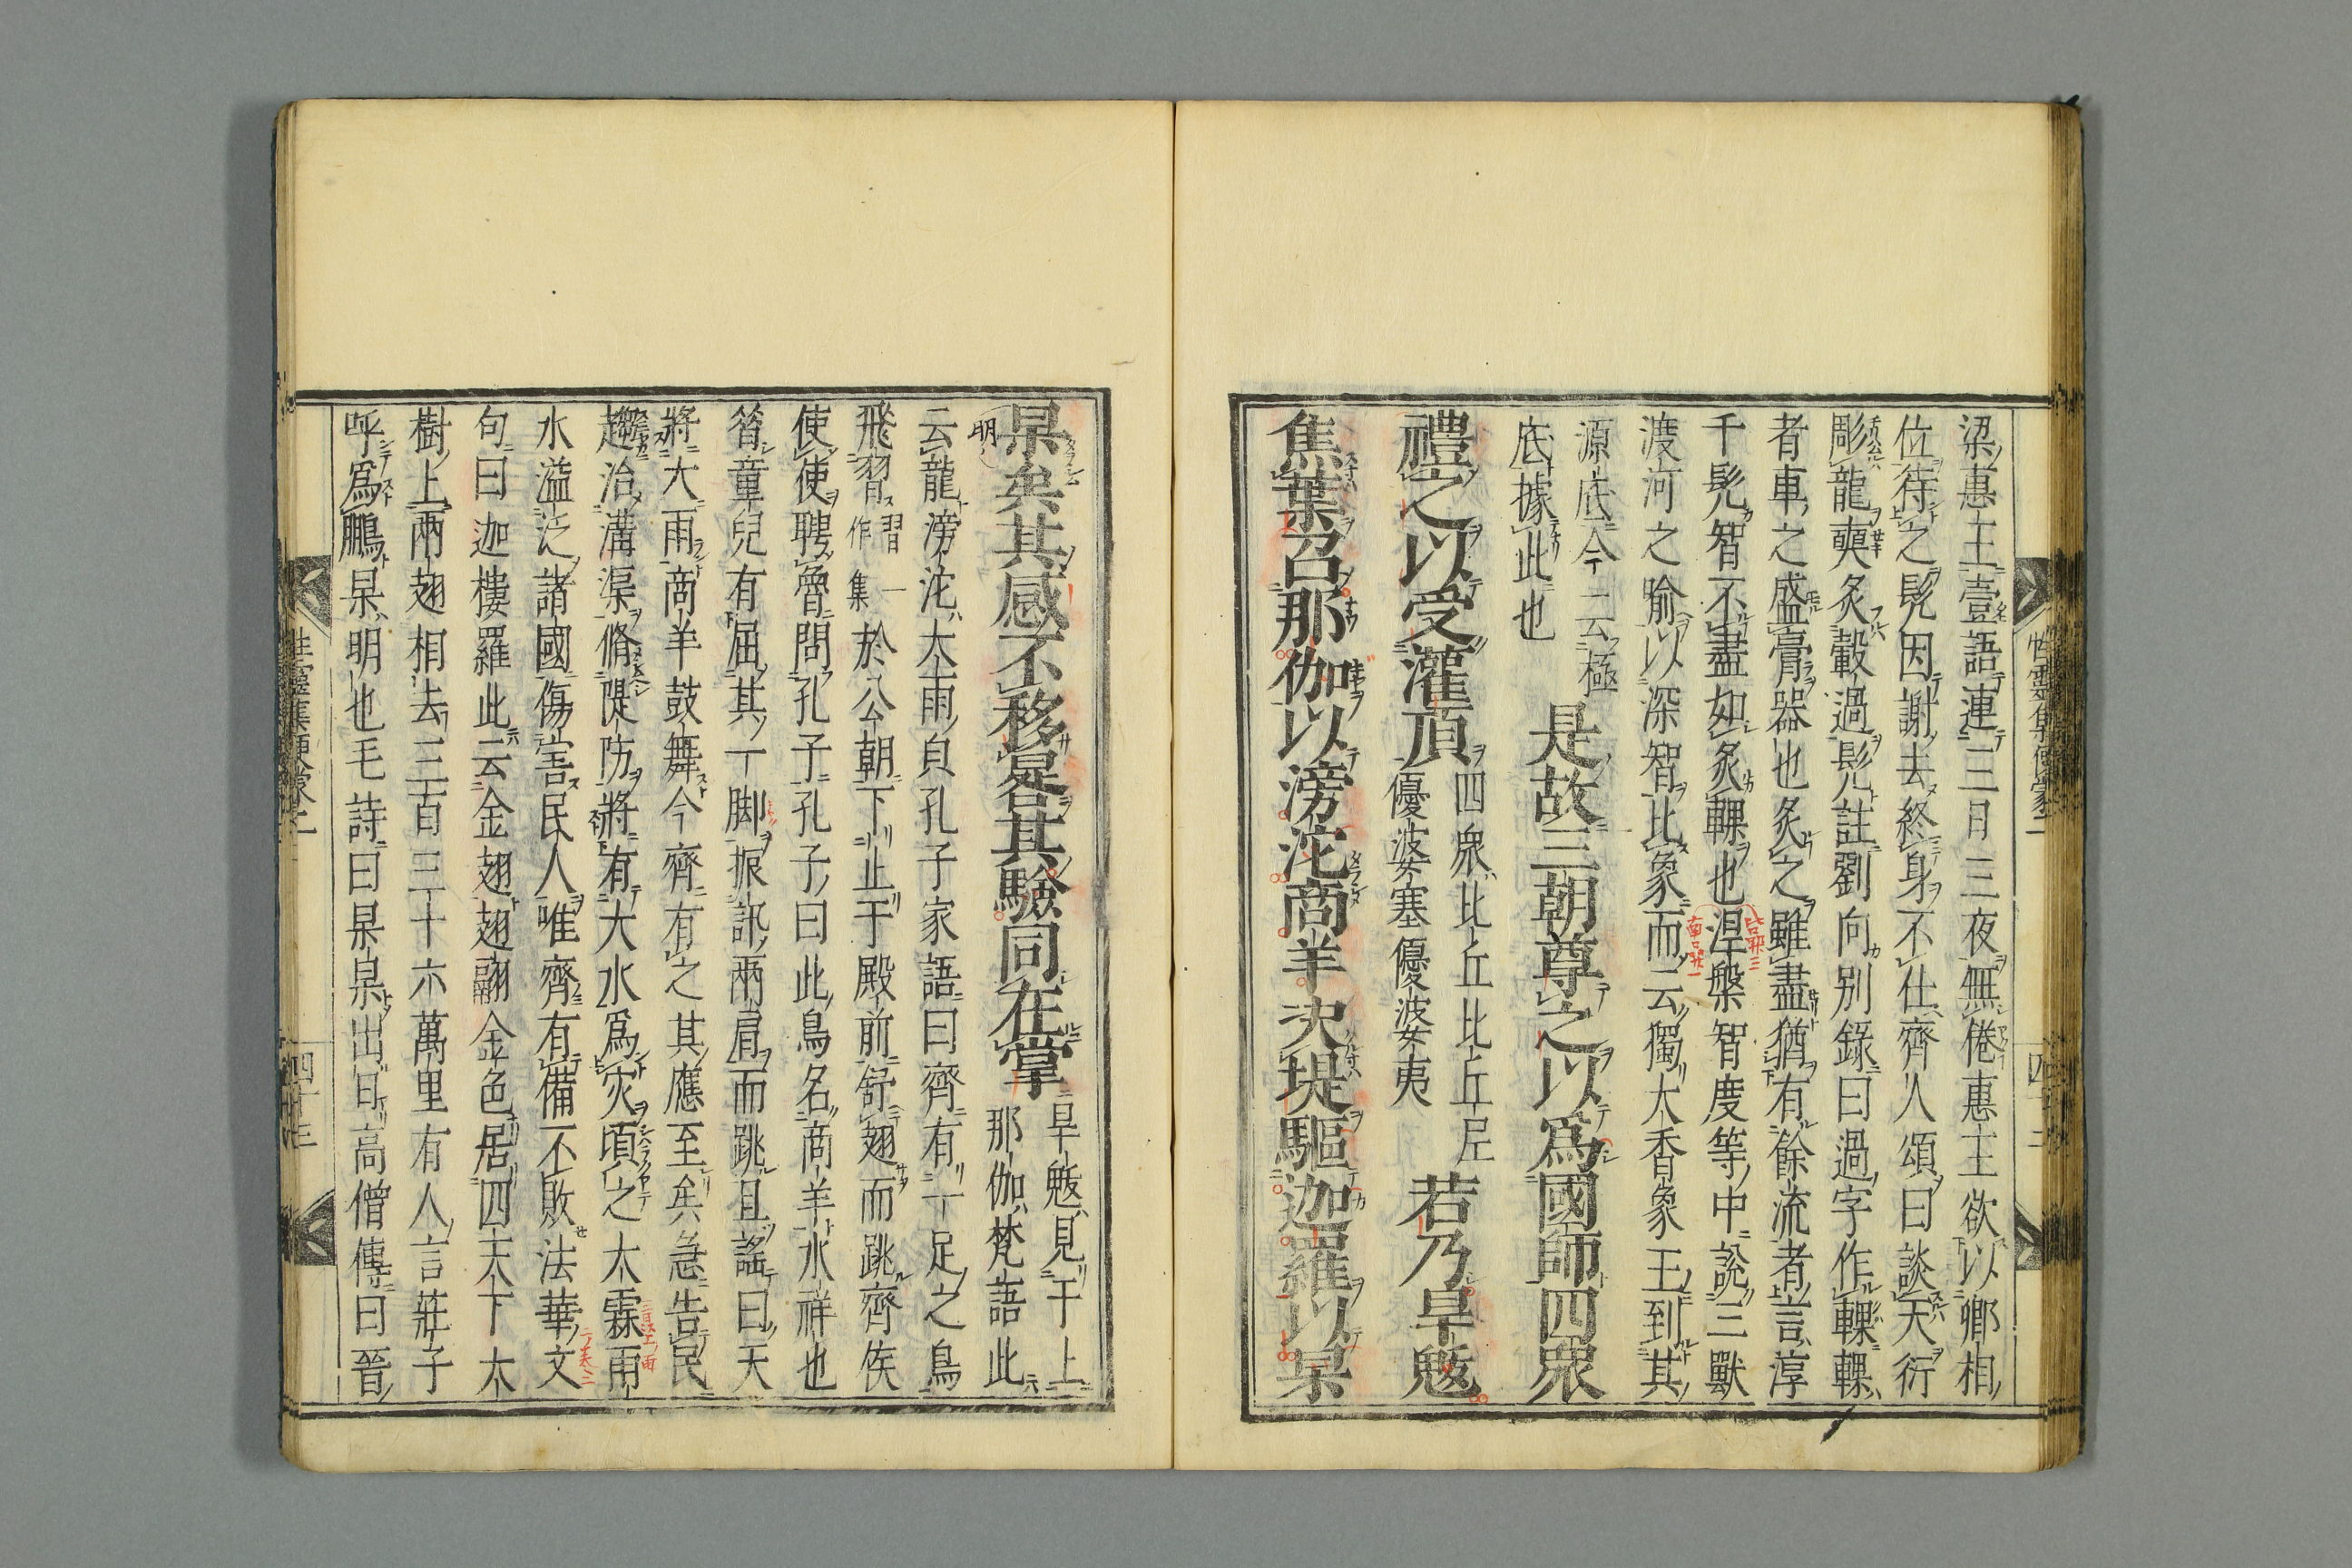 梁惠王壹語連三日三夜無倦惠王欲以卿相
位待之髡因謝去終身不仕齊人頌曰談天衍
彫龍奭炙轂過髡註劉向別錄曰過字作輠輠
者車之盛膏器也炙之雖盡猶有餘流者言淳
千髡智不盡如炙輠也涅槃智度等中說三獸
渡河之喻以深智比象而云獨大香象王到其
源底今云極
底據此也
是故三朝尊之以爲國師四眾
禮之以受灌頂
四衆比丘比丘尼
優婆塞優婆夷
若乃旱魃
焦葉召那伽以滂沱商羊決堤驅迦羅以杲
杲矣其感不移晷其驗同在掌
旱魃見于上
那伽梵語此
云龍滂沱大雨皃孔子家語曰齊有一足之鳥
飛習習一作集於公朝下止于殿前舒翅而跳齊侯
使使聘魯問孔子孔子曰此鳥名商羊水祥也
昝童兒有屈其一脚振訊兩肩而跳且謠曰天
將大雨商羊鼓舞今齊有之其應至矣急告民
趨治溝渠脩隄防將有大水爲灾頃之大霖雨
水溢泛諸國傷害民人唯齊有備不敗法華文
句曰迦樓羅此云金翅翅翮金色居四天下大
樹上兩翅相去三百三十六萬里有人言莊子
呼爲鵬杲明也毛詩曰杲杲出日高僧傳曰晉
明
性靈集便蒙二
四十三